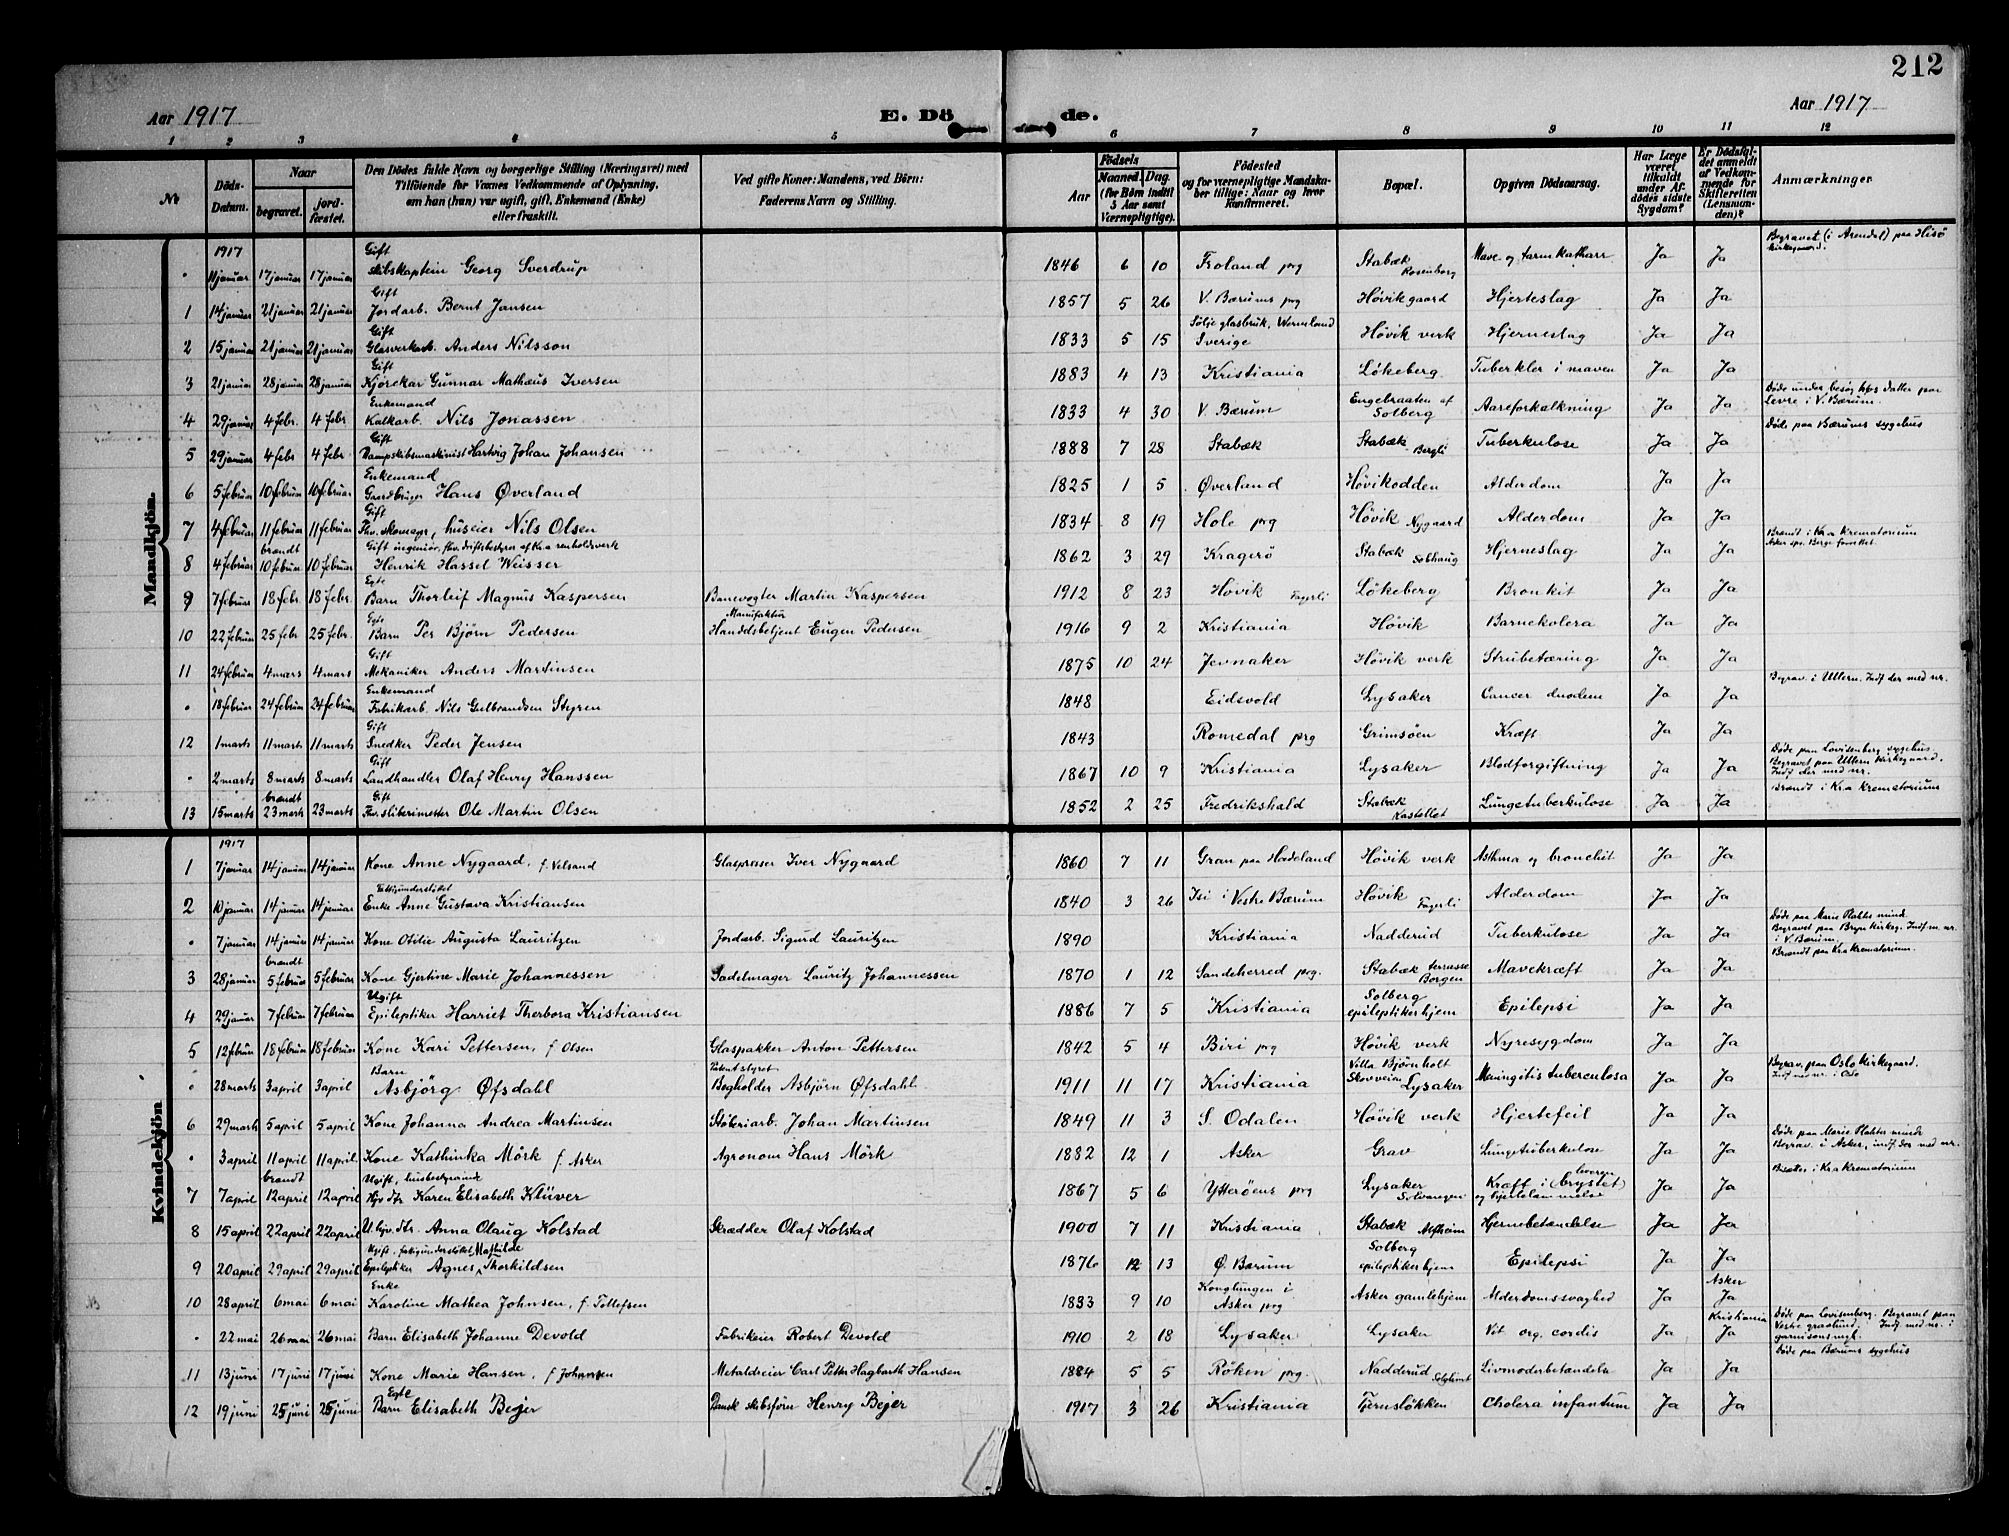 212
Aar 1917 E. Dö de. Aar 1917
1 2 3 4 5 6 7 8 9 10 11 12
No
Döds-Datum.
Naar
begravet.
jord-festet.
Den Dödes fulde Navn og borgerlige Stilling (Næringsvei) med
Tilföiende for Voxnes Vedkommende af Oplysning,
om han (hun) var ugift, gift, Enkemand (Enke)
eller fraskilt.
Ved gifte Koner: Mandens, ved Börn:
Faderens Navn og Stilling.
Födsels
Aar
Maaned. Dag.
(for Börn indtil
5 Aar samt
Værnepligtige).
Födested
og for værnepligtige Mandska-
ber tillige: Naar og hvor
konfirmeret.
Bopæl.
Opgiven Dödsaarsag.
Har Læge
været
tilkaldt
under Af-
dödes sidste
Sygdom?
Er Dödsfal-
det anmeldt
af Vedkom-
mende for
Skifteretten
(Lensman-
den)?
Anmærkninger
Mandkjön.
1917 Gift Begravet (i Arendal) paa Hisö Kirkegaard.
" 11 januar 17 januar 17 januar Skibskaptein Georg Sverdrup 1846 6 10 Froland prg Stabæk Rosenborg Mave og tarmkatharr Ja Ja
Gift
1 14 januar 21 januar 21 januar Jordarb. Bernt Jansen 1857 5 26 V. Bærums prg Høvikgaard Hjerteslag Ja Ja
Gift Sölje glasbruk, Wermland
2 15 januar 21 januar 21 januar Glasverkarb. Anders Nilsson 1833 5 15 Sverige Høvik verk Hjerneslag Ja Ja
Gift
3 21 januar 28 januar 28 januar Kjörekar Gunnar Mathæus Iversen 1883 4 13 Kristiania Løkeberg Tuberkler i maven Ja Ja
Enkemand Døde under besøg hos datter paa Levre i V. Bærum.
4 29 januar 4 febr. 4 febr. Kalkarb. Nils Jonassen 1833 4 30 V. Bærum Engebraaten af Solberg Aareforkalkning Ja Ja
Gift Døde paa Bærums sygehus
5 29 januar 4 febr 4 febr Dampskibsmaskinist Hartvig Johan Johansen 1888 7 28 Stabæk Stabæk Bergli Tuberkulose Ja Ja
Enkemand
6 5 februar 10 februar 10 februar Gaardbruger Hans Øverland 1825 1 5 Øverland Høvikodden Alderdom Ja Ja
Gift
7 4 februar 11 februar 11 februar Fhv. skomagr, huseier Nils Olsen 1834 8 19 Hole prg Høvik Nygaard Alderdom Ja Ja
brændt Gift ingeniør, fhv. driftsbestyrer af Kra renholdsverk Brændt i Kra Krematorium
8 4 februar 10 februar 10 februar Henrik Hassel Weisser 1862 3 29 Kragerø Stabæk Solhaug Hjerneslag Ja Ja
Egte
9 7 februar 18 febr. 18 febr. Barn Thorleif Magnus Kaspersen Banevogter Martin Kaspersen 1912 8 23 Høvik Fagerli Løkeberg Bronkit Ja Ja
Egte Manufaktur
10 22 februar 25 febr 25 febr. Barn Per Björn Pedersen Handelsbetjent Eugen Pedersen 1916 9 2 Kristiania Høvik Barnekolera Ja Ja
Gift
11 24 februar 4 marts 4 marts Mekaniker Anders Martinsen 1875 10 24 Jevnaker Høvik verk Strubetæring Ja Ja
Enkemand Begrav. i Ullern. Indf der med nr.
" 18 februar 24 februar 24 februar Fabrikarb. Nils Gulbrandsen Styren 1848 Eidsvold Lysaker Cancer duodem Ja Ja
Gift
12 1 marts 11 marts 11 marts Snedker Peder Jensen 1843 Romedal prg Grimsøen Kræft Ja Ja
Gift Døde paa Lovisenberg sygehus. Begravet paa Ullern Kirkegaard. Indf der med nr.
" 2 marts 8 marts 8 marts Landhandler Olaf Henry Hanssen 1867 10 9 Kristiania Lysaker Blodforgiftning Ja Ja
brændt Gift Brændt i Kra Krematorium
13 15 marts 23 marts 23 marts Fhv. sliberimester Ole Martin Olsen 1852 2 25 Fredrikshald Stabæk Kastellet Lungetuberkulose Ja Ja
Kvindekjön
1917
1 7 januar 14 januar 14 januar Kone Anne Nygaard, f. Velsand Glaspresser Iver Nygaard 1860 7 11 Gran paa Hadeland Høvik verk Asthma og bronchit Ja Ja
Fattigunderstøttet
2 10 januar 14 januar 14 januar Enke Anne Gustava Kristiansen 1840 3 26 Isi i Vestre Bærum Høvik Fagerli Alderdom Ja Ja
Døde paa Marie Plahtes minde Begravet paa Bryn Kirkeg. Indf m. nr. i V. Bærum.
" 7 januar 14 januar 14 januar Kone Otilie Augusta Lauritzen Jordarb. Sigurd Lauritzen 1890 Kristiania Nadderud Tuberkulose Ja Ja
brændt Brændt paa Kra Krematorium.
3 28 januar 5 februar 5 februar Kone Gjertine Marie Johannessen Sadelmager Lauritz Johannessen 1870 1 12 Sandeherred prg. Stabæk terrasse Borgen Mavekræft Ja Ja
Ugift
4 29 januar 7 februar 7 februar Epileptiker Harriet Therbora Kristiansen 1886 7 5 Kristiania Solberg epileptikerhjem Epilepsi Ja Ja
5 12 februar 18 februar 18 februar Kone Kari Pettersen, f. Olsen Glaspakker Anton Pettersen 1842 5 4 Biri prg Høvik verk Nyresygdom Ja Ja
Barn Patentstyret Begrav. paa Oslo Kirkegaard. Indf med nr. i Oslo
" 28 marts 3 april 3 april Asbjörg Øfsdahl Bogholder Asbjörn Øfsdahl 1911 11 17 Kristiania Villa Bjørnholt Skovveien Lysaker Meningitis tuberculosa Ja Ja
6 29 marts 5 april 5 april Kone Johanna Andrea Martinsen Støberiarb. Johan Martinsen 1849 11 3 S. Odalen Høvik verk Hjertefeil Ja Ja
Døde paa Marie Plahtes minde Begrav. i Asker, indf. der med nr.
" 3 april 11 april 11 april Kone Kathinka Mörk f. Asker Agronom Hans Mörk 1882 12 1 Asker Grav Lungetuberkulose Ja Ja
brændt Ugift, husbestyrinde Bisattes i Kra Krematorium
7 7 april 12 april 12 april Hjv. dtr. Karen Elisabeth Klüver 1867 5 6 Ytterøens prg Lysaker Solvangen Kræft i (brystet) leveren og hjertelammelse Ja Ja
8 15 april 22 april 22 april U. hjv. dtr. Anna Olaug Kolstad Skrædder Olaf Kolstad 1900 7 11 Kristiania Stabæk Alfheim Hjernebetændelse Ja Ja
Ugift, fattigunderstøttet Mathilde
9 20 april 29 april 29 april Epileptiker Agnes Thorkildsen 1876 12 13 Ø. Bærum Solberg epileptikerhjem Epilepsi Ja Ja
Enke Asker
10 28 april 6 mai 6 mai Karoline Mathea Johnsen, f. Tollefsen 1833 9 10 Konglungen i Asker prg Asker gamlehjem Alderdomssvaghed Ja Ja
Kristiania Døde paa Lovisenberg. Begravet paa Vestre gravlund. Indf med nr. i garnisonsmgt.
" 22 mai 26 mai 26 mai Barn Elisabeth Johanne Devold Fabrikeier Robert Devold 1910 2 18 Lysaker Lysaker Vit. org. cordis Ja Ja
Døde paa Bærums sygehus
11 13 juni 17 juni 17 juni Kone Marie Hansen, f Johannsen Metaldreier Carl Petter Hagbarth Hansen 1884 5 5 Røken prg. Nadderud Solglimt Livmoderbetændelse Ja Ja
Egte
12 19 juni 25 juni 25 juni Barn Elisabeth Bejer Dansk skibsfører Henry Bejer 1917 3 26 Kristiania Fjernsløkken Cholera infantum Ja Ja